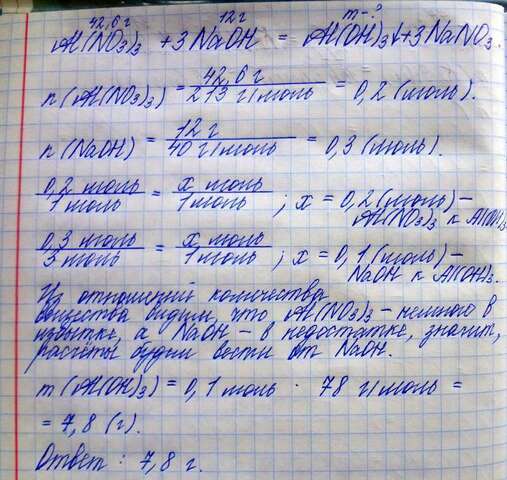 42,6 г 12 г m - ?
Al(NO3)3 + 3 NaOH = Al(OH)3↓ + 3 NaNO3.
n (Al(NO3)3) = 42,6 г / 213 г/моль = 0,2 (моль).
n (NaOH) = 12 г / 40 г/моль = 0,3 (моль).
0,2 моль / 1 моль = x моль / 1 моль ; x = 0,2 (моль) –
Al(NO3)3 к Al(OH)3
0,3 моль / 3 моль = x моль / 1 моль ; x = 0,1 (моль) –
NaOH к Al(OH)3.
Из отношений количества
вещества видим, что Al(NO3)3 - немного в
избытке, а NaOH - в недостатке, значит,
расчёты будем вести от NaOH.
m (Al(OH)3) = 0,1 моль · 78 г/моль =
= 7,8 (г).
Ответ : 7,8 г.